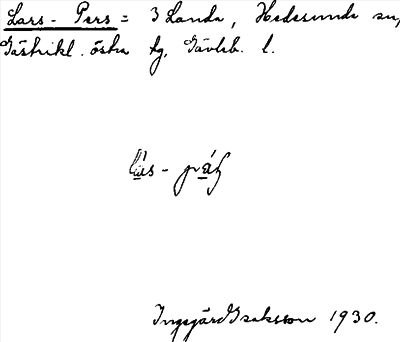 Lars-Pers = 3 Landa, Hedesunda sn,
Gästrikl. östra tg, Gävleb. l.
Ingegärd Isaksson 1930.